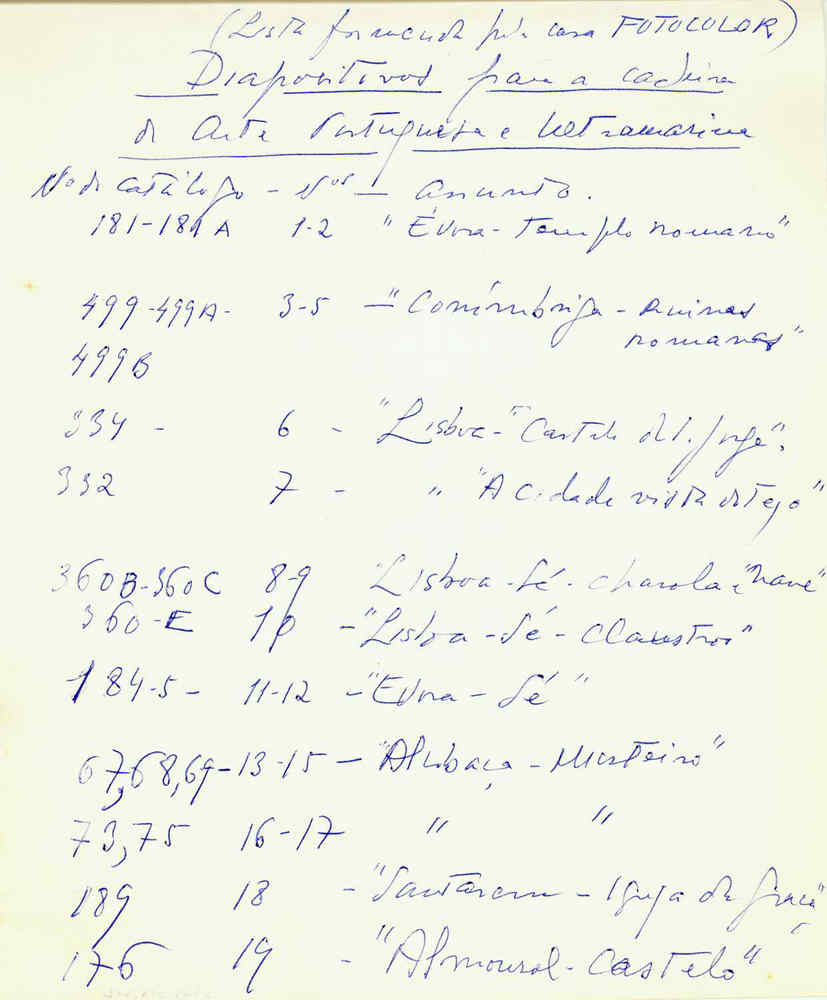 (Lista fornecida pela casa FOTOCOLOR)
Diapositivos para a cadeira
de Arte Portuguesa e Ultramarina
Nº de Catálogo - Nos — Assunto.
181-181A 1-2 "Évora - Templo romano"
499-499A- 3-5 — "Conímbriga - Ruinas
romanas"
499B
334 - 6 - "Lisboa - "Castelo de S. Jorge".
332 7 - " "A Cidade vista do Tejo"
360B-360C 8-9 "Lisboa - Sé - charola e "nave"
360-E 10 - "Lisboa - Sé - Claustros"
184-5 - 11-12 - "Evora - Sé"
67,68,69 - 13-15 — "Alcobaça - Mosteiro"
73,75 16-17 " "
189 18 - "Santarem - Igreja da Graça"
176 19 - "Almourol - Castelo"